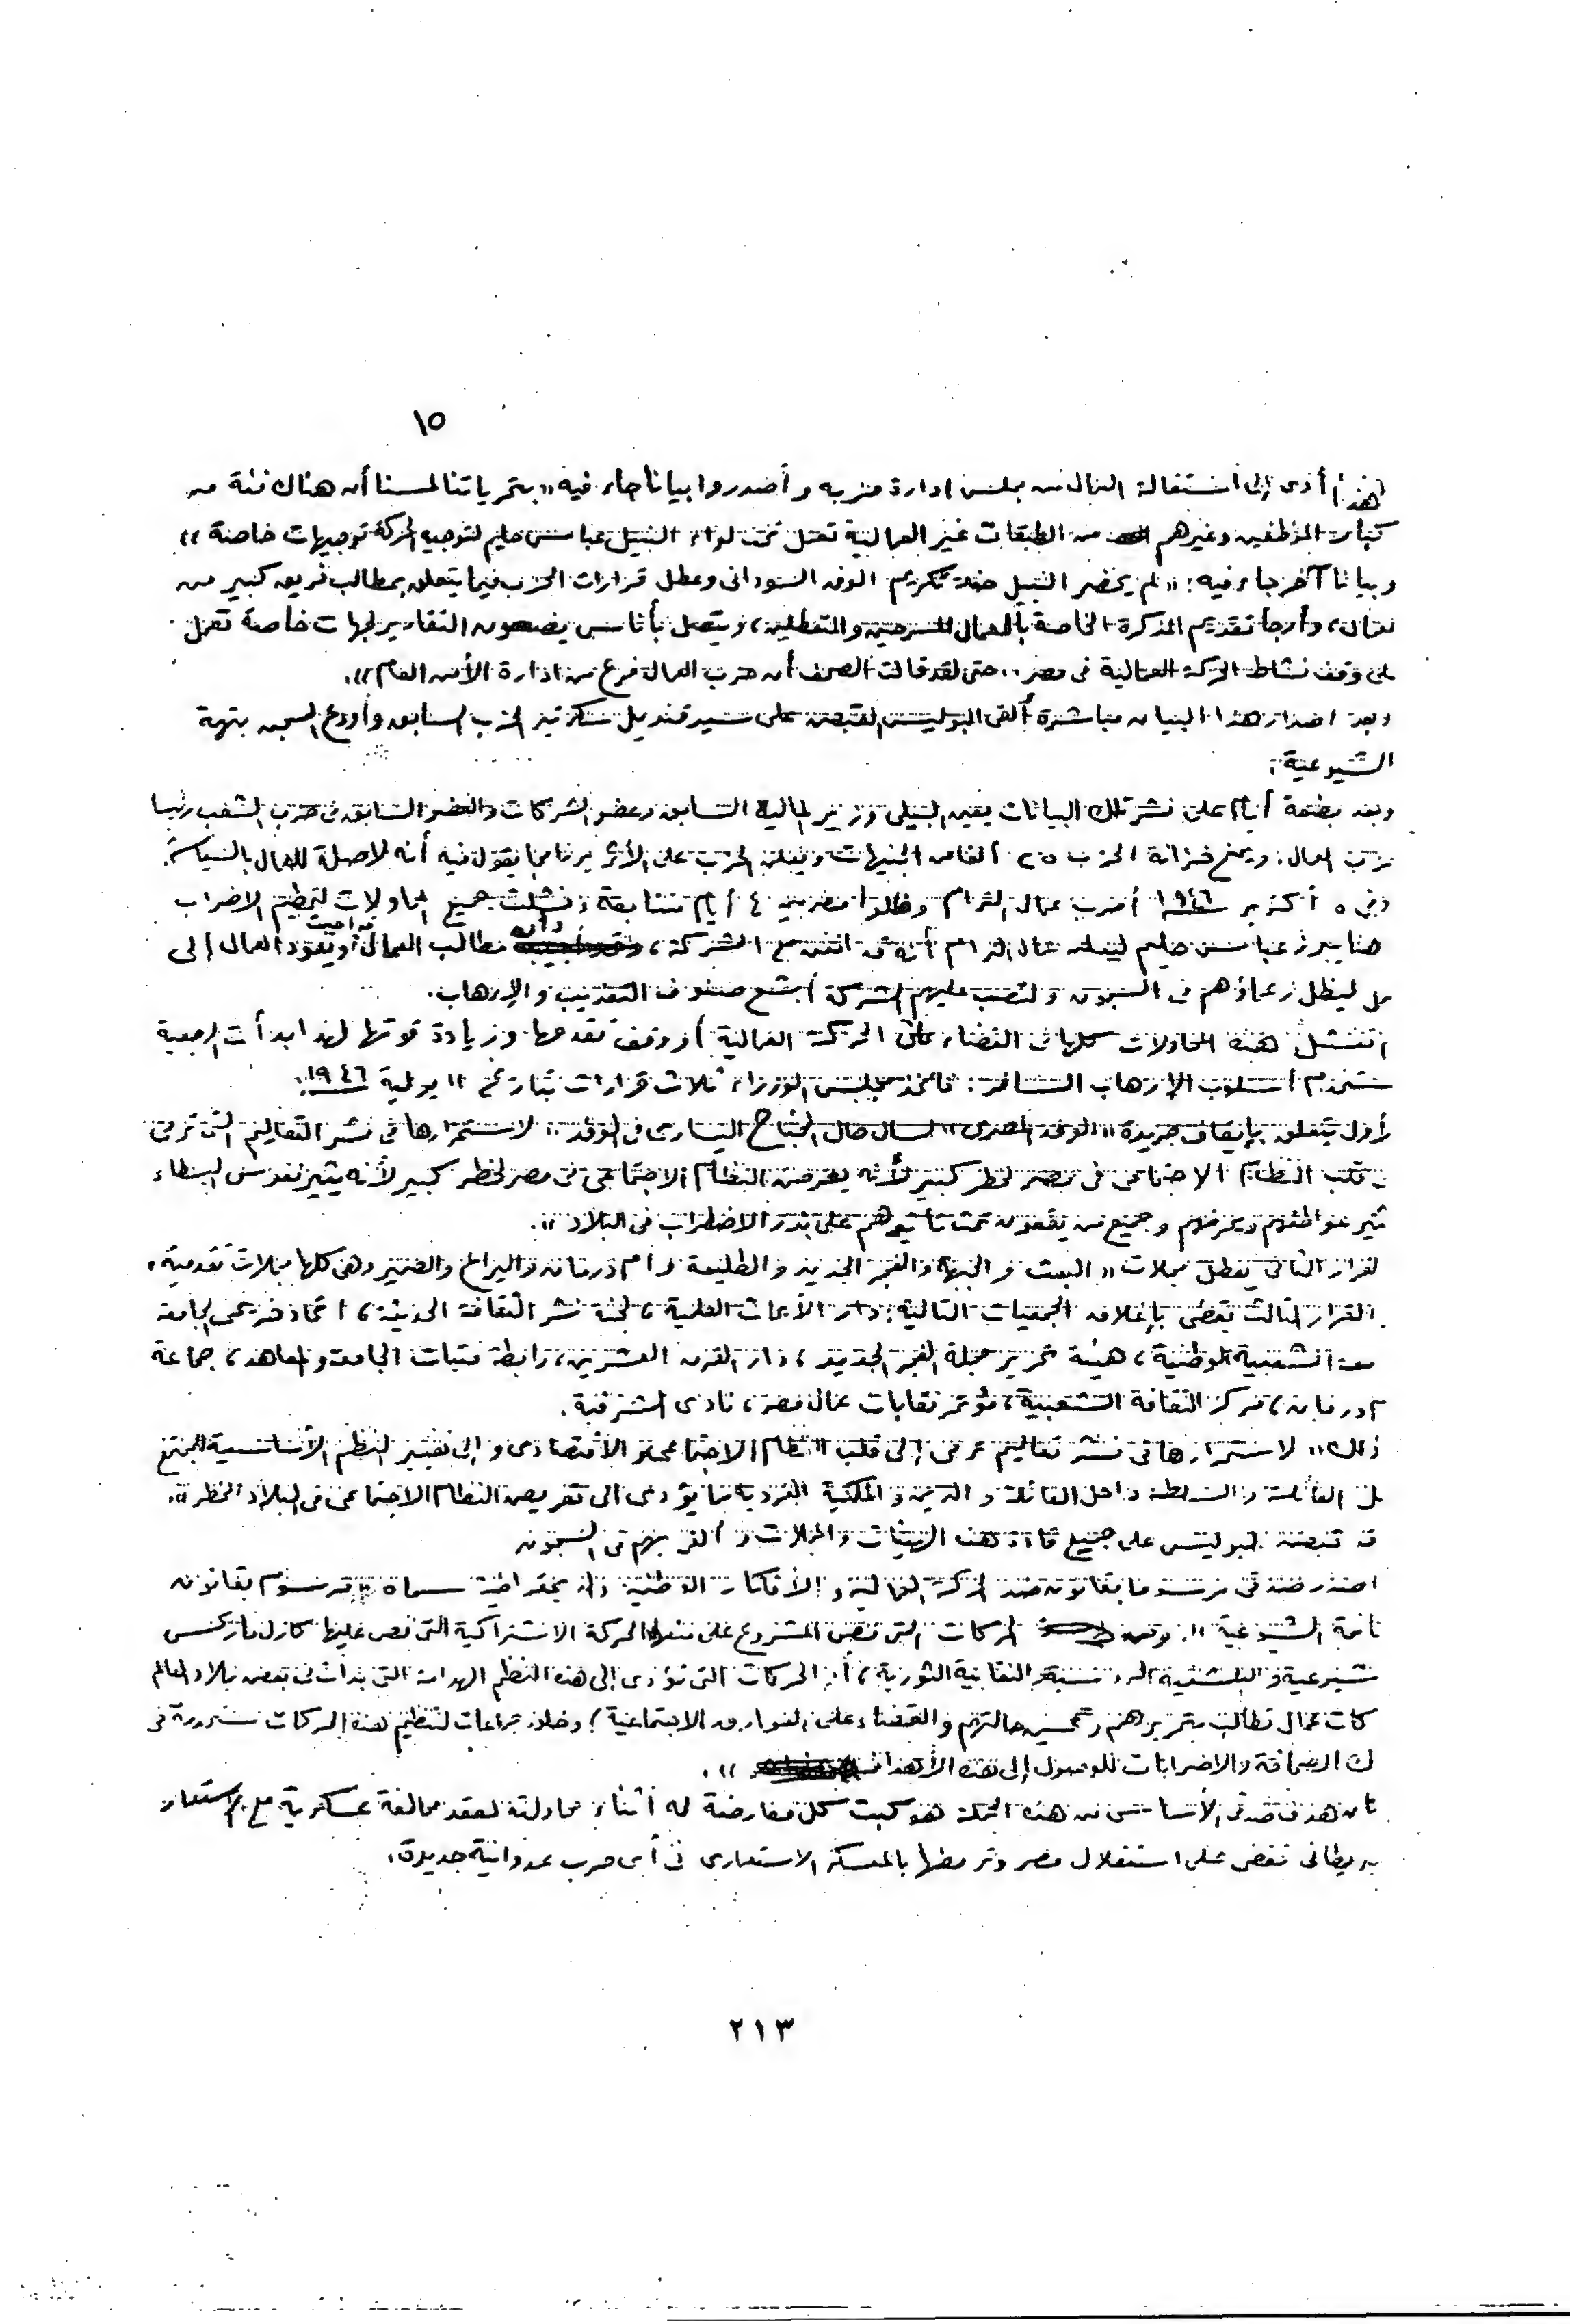 ١٥
هذا أدى إلى استقالة العمال من مجلس ادارة حزبه وأصدروا بيانا جاء فيه « بتحرياتنا لمسنا أن هناك فئة من
كبار الموظفين وغيرهم من الطبقات غير العمالية تعمل تحت لواء النبيل عباس حليم لتوجيه الحركة توجيهات خاصة »
وبيانا آخر جاء فيه: « لم يحضر النبيل حفلة تكريم الوفد السودانى وعطل قرارات الحزب فيما يتعلق بمطالب فريق كبير من
لعمال، وأرجأ تقديم المذكرة الخاصة بالعمال المسرحين والمتعطلين، ويتصل بأناس يضعون التقارير لجهات خاصة تعمل
على وقف نشاط الحركة العمالية فى مصر.. حتى لقد قالت الصحف أن حزب العمال فرع من ادارة الأمن العام ».
وبعد اصدار هذا البيان مباشرة ألقى البوليس القبض على سيد قنديل سكرتير الحزب السابق وأودع السجن بتهمة
الشيوعية:
وبعد بضعة أيام على نشر تلك البيانات يعين النبيل وزير المالية السابق وعضو الشركات والعضو السابق فى حزب الشعب رئيسا
حزب العمال. ويمنح خزانة الحزب ٢٥ ألفا من الجنيهات ويعلن الحزب على الأثر برنامجا يقول فيه أنه لاصلة للعمال بالسياسة.
وفى ٥ أكتوبر سنة ١٩٤٦ أضرب عمال الترام وظلوا مضربين ٤ أيام متتابعة وفشلت جميع المحاولات لتحطيم الاضراب
هنا يبرز عباس حليم ليعلن عمال الترام أنه قد اتفق مع الشركة، وأن مطالب العمال قد أجيبت ويعود العمال إلى
مل ليظل زعماؤهم فى السجون ولتصب عليهم الشركة أبشع صنوف التعذيب والإرهاب.
ا تفشل هذه المحاولات كلها فى القضاء على الحركة العمالية أو وقف تقدمها وزيادة قوتها لهذا بدأت الرجعية
ستخدم أسلوب الإرهاب السافر: فاتخذ مجلس الوزراء ثلاث قرارات بتاريخ ١١ يولية سنة ١٩٤٦:
لأول يتعلق بإيقاف جريدة « الوفد المصرى » لسان حال الجناح اليسارى فى الوفد « لاستمرارها فى نشر التعاليم التى ترمى
ى قلب النظام الاجتماعى فى مصر لخطر كبير لأنه يعرض النظام الاجتماعى فى مصر لخطر كبير لأنه يثير نفوس البسطاء
ثير عواطفهم ويحرضهم وجميع من يقعون تحت تأثيرهم على بذر الاضطراب فى البلاد ».
لقرار الثانى يعطل مجلات « البعث والجبهة والفجر الجديد والطليعة وأم درمان واليراع والضمير وهى كلها مجلات تقدمية.
القرار الثالث يقضى بإغلاق الجمعيات التالية: دار الأبحاث العلمية، لجنة نشر الثقافة الحديثة، اتحاد خريجى الجامعة
معة الشعبية الوطنية، هيئة تحرير مجلة الفجر الجديد، دار القرن العشرين، رابطة فتيات الجامعة والمعاهد، جماعة
م درمان، مركز الثقافة الشعبية، مؤتمر نقابات عمال مصر، نادى الشرقية.
ذلك « لاستمرارها فى نشر تعاليم ترمى إلى قلب النظام الاجتماعى والاقتصادى وإلى تغيير النظم الأساسية للمجتمع
ثل العائلة والسلطة داخل العائلة والدين والملكية الفردية مما يؤدى الى تعريض النظام الاجتماعى فى البلاد للخطر ».
قد قبض البوليس على جميع قادة هذه الهيئات والمجلات وألقى بهم فى السجون
اصدر صدقى مرسوما بقانون ضد الحركة العمالية والأفكار الوطنية والديمقراطية سماه « مرسوم بقانون
افحة الشيوعية ». الحركات التى نص المشروع على الحركة الاشتراكية التى نص عليها كارل ماركس
شيوعية والبلشفية والنقابية الثورية، أن الحركات التى تؤدى إلى هذه النظم الهدامة التى بدأت فى بعض بلاد العالم
كات عمال تطالب بتحريرهم وتحسين حالتهم والقضاء على الفوارق الاجتماعية؛ وخلق جماعات لتنظيم هذه الحركات
ك الصحافة والاضرابات للوصول إلى هذه الأهداف ».
كان هدف صدقى الأساسى من هذه الحملة هو كبت كل معارضة له أثناء محاولته لعقد محالفة عسكرية مع الاستعمار
بريطانى تقضى على استقلال مصر وتربطها بالمعسكر الاستعمارى فى أى حرب عدوانية جديدة.
٢١٣